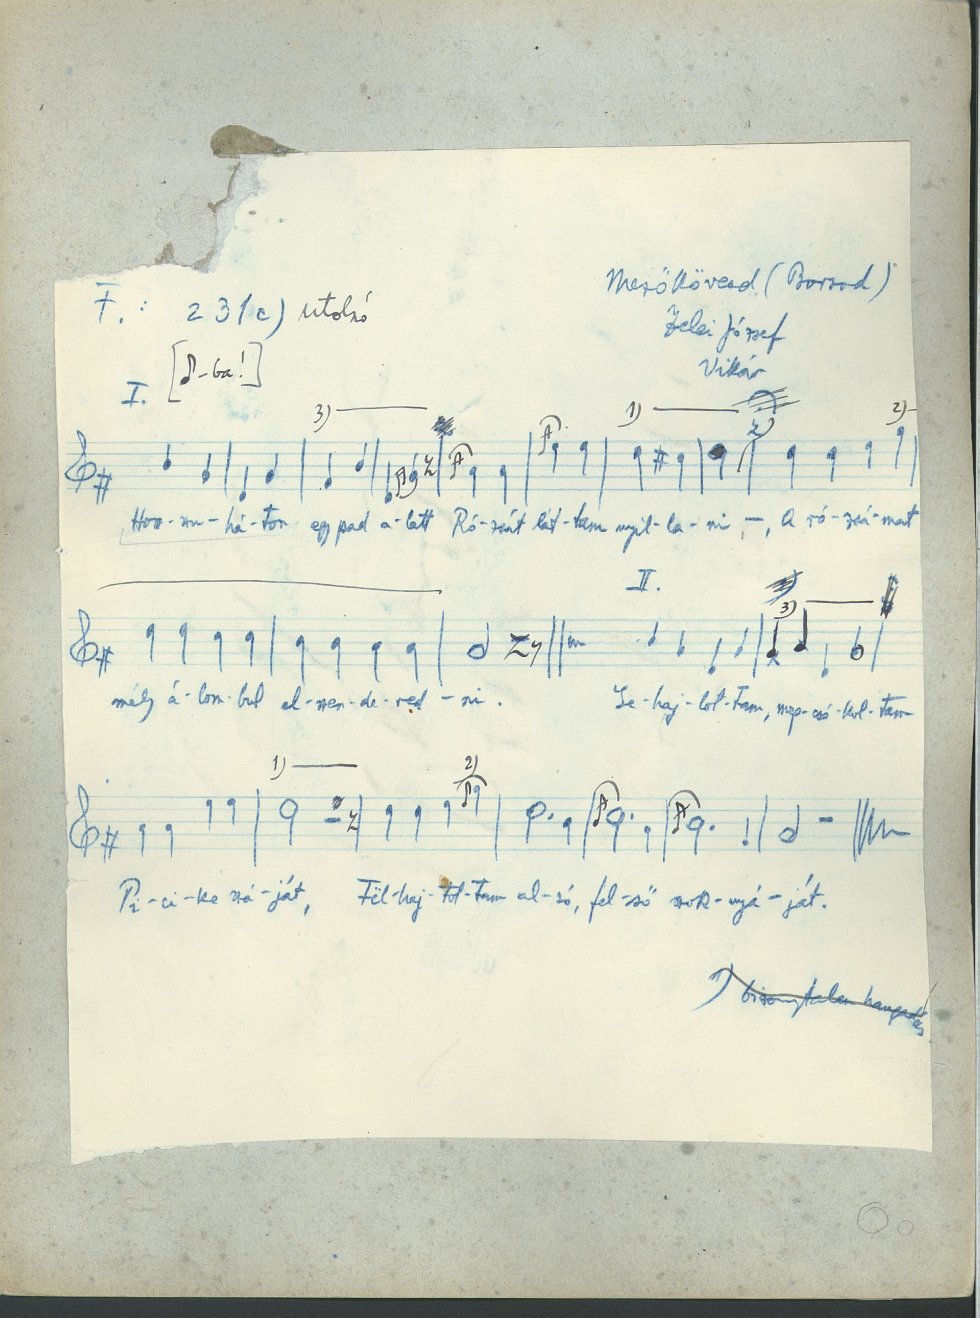 F.: 231c) utolsó
Mezőkövesd (Borsod)
Zelei József
Vikár
[♪-ba!]
I.
3) 1) 2)
Hor-nu-há-ton egy pad a-latt Ró-zsát lát-tam nyil-la-ni –, A ró-zsá-mat
II.
3)
mély á-lom-bul el-szen-de-red-ni.
Le-haj-lot-tam, meg-csó-kol-tam
1) 2)
Pi-ci-ke szá-ját, Föl-haj-tot-tam al-só, fel-ső szok-nyá-ját.
1) bizonytalan hangadás